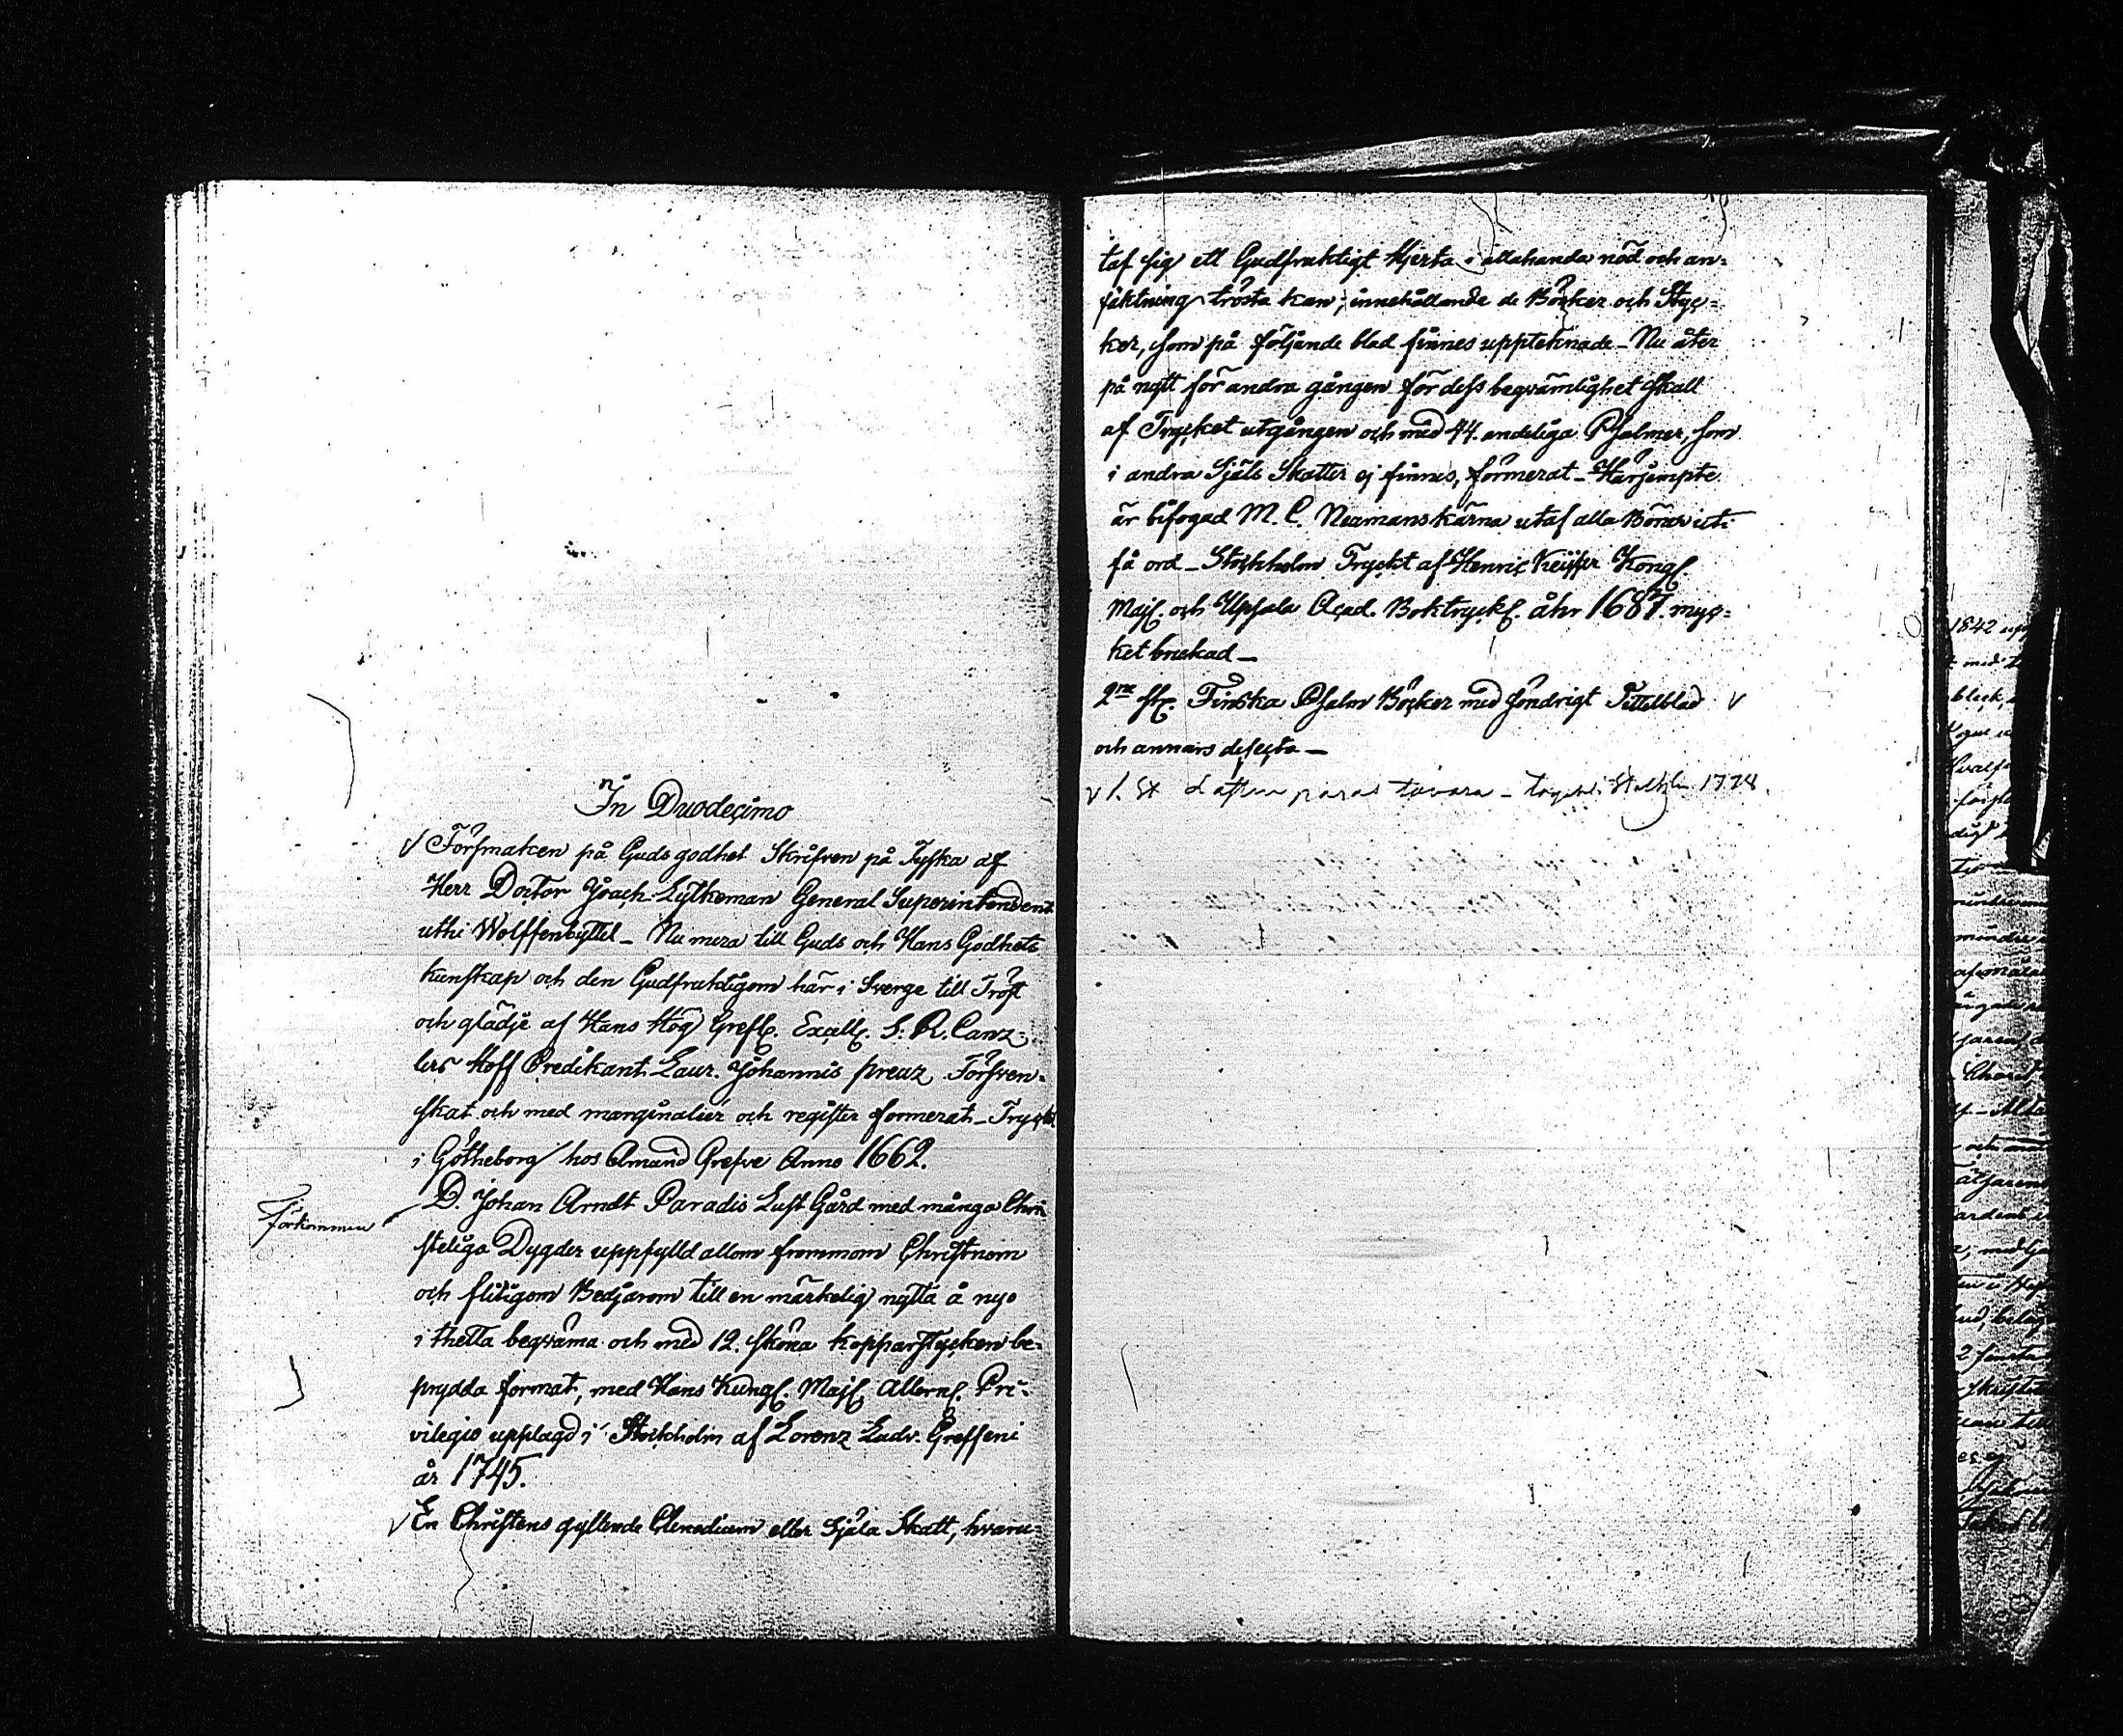 In Duodecimo
Försmaken på Guds godhet Skrifven på Tyska af
Herr Doctor Joach. Lytkeman General Superintendent
uthi Wolffenbyttel _ Nu mera till Guds och Hans Godhets
kunskap och den Gudfruktigom här i Sverge till Tröst
och glädje af Hans Hög Grefl. Excell. S. R. Canz=
lers Hoff Predikant Laur. Johannis preuz Försven=
skat och med marginalier och register formerat _ Tryckt
i Götheborg hos Amund Grefve Anno 1662.
D. Johan Arndt Paradis Lust Gård med många Chri
Förkommen
steliga Dygder uppfylld allom frommom Christnom
och flitigom Bedjarom till en märkelig nytta å nyo
i thetta beqväma och med 12. sköna kopparstycken be=
prydda format, med Hans Kungl. Majt. Allern. Pri=
vilegio upplagd i Stockholm af Lorenz Ludv. Greffeni
år 1745.
En Christens gyllende Clenodium eller Själa Skatt, hvaru=
taf sig ett Gudfruktigt Hjerta i allahanda nöd och an=
fäktning trösta kan; innehållande de Böcker och Styc=
ker, som på följande blad finnes uppteknade _ Nu åter
på nytt för andra gången för dess beqvämlighet skall
af Trycket utgången och med 44. andeliga Psalmer, som
i andra Själe Skatter ej finnes, förmerat _ Härjempte
är bifogad M. C. Neumans kärna utaf alla Böner uti
få ord _ Stockholm Tryckt af Henric Keijser Kongl.
Majt. och Upsala Acad. Boktryck. åhr 1687. myc=
ket brukad _
2ne st. Finska Psalm Böcker med söndrigt Tittelblad
och annars defecta _
1. St Lasten paras tavara _ tryckt i Stockholm 1778.